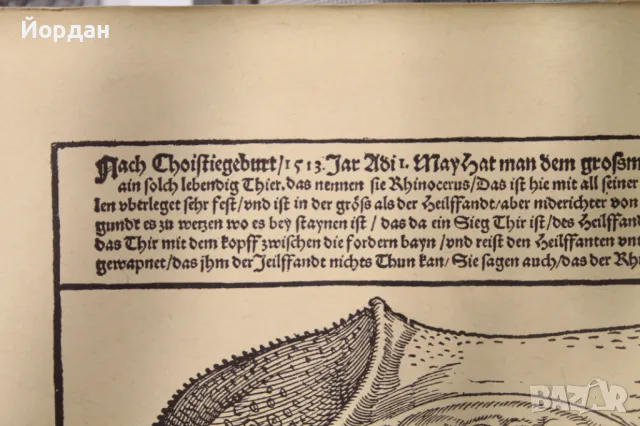 Йордан
Nach Choistiegeburt/1513. Jar Adi 1. May Hat man dem grosm
ain solch lebendig Thier. das nennen sie Rhinocerus/Das ist hie mit all seiner
len vbtrleget sehr fest/vnd ist in der gröss als der Heilffandt/aber niderichter von
gundt es zu wetzen wo es bey staynen ist / das da ein Sieg Thir ist/des Heilffand
das Thir mit dem kopff zwischen die fordern bayn /vnd reist den Heilffanten vn
gewapnet/das jhm der Jeilffandt nichts Thun kan/Sie sagen auch/das der Rhi
BAZAR
bg